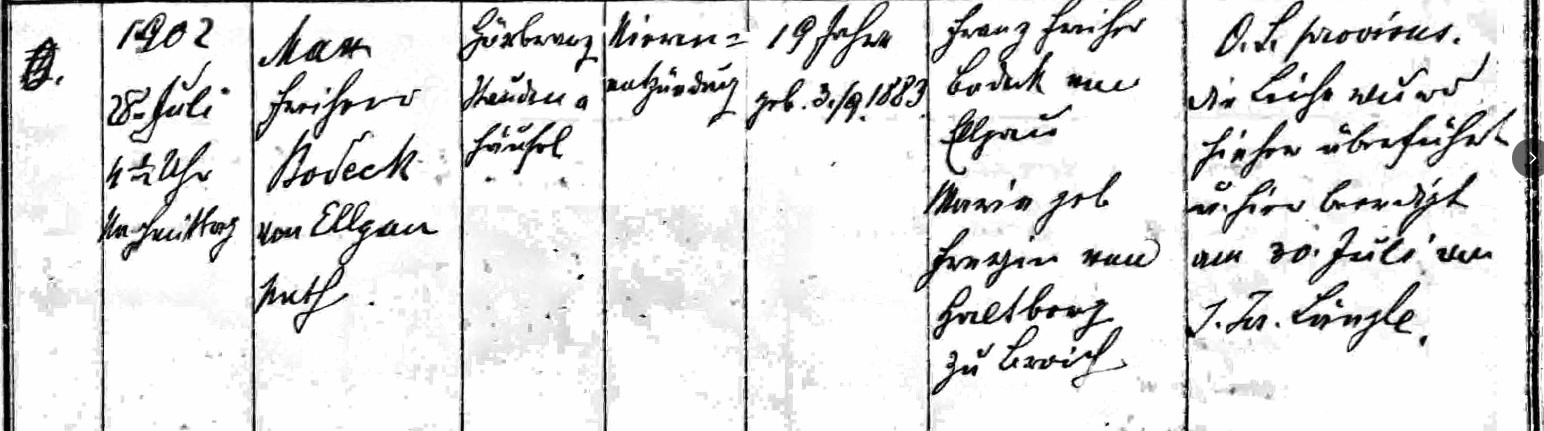 8.
1902
28. Juli
4 1/2 Uhr
Nachmittag
Max
Freiherr
Bodeck
von Ellgau
kath.
Hörbranz
häusl
Nieren=
entzündung
19 Jahre
geb. 3./9. 1883.
Franz Freiherr
Bodeck von
Ellgau
Maria geb
Freyin von
zu Broich
O. S. provisus.
die Leiche wurd
hieher überführt
u. hier beerdigt
am 30. Juli von
J. Längle.